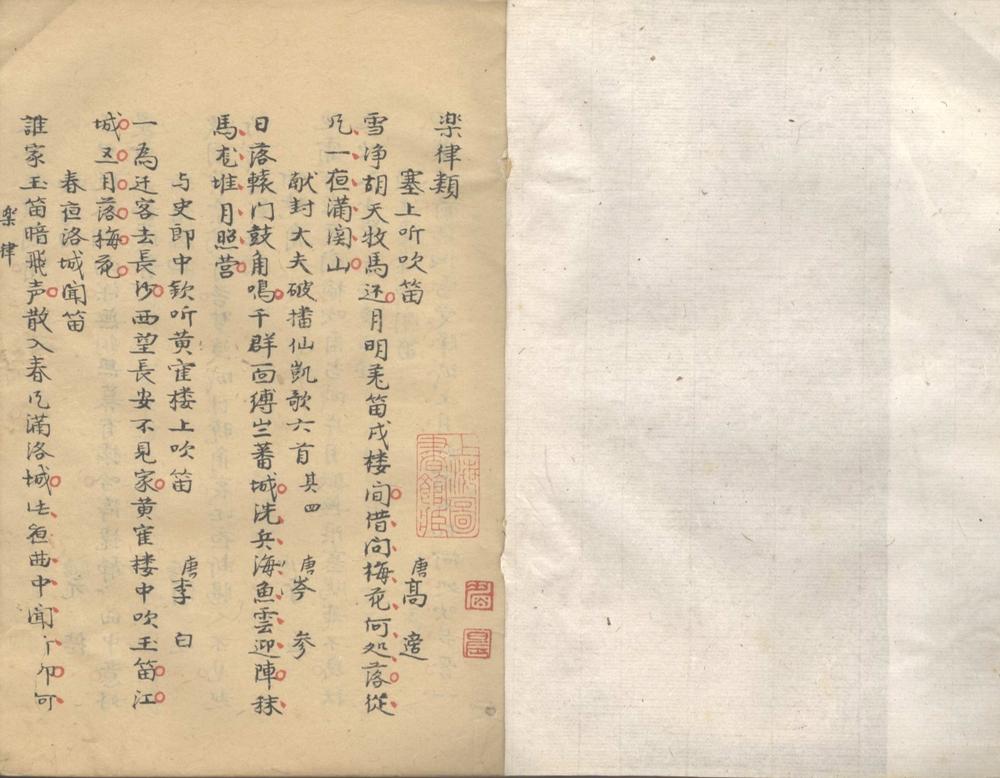 楽律類
塞上听吹笛
唐高適
雪净胡天牧馬还月明羌笛戍楼间借问梅花何処落従
凡一夜满関山
献封大夫破播仙凱歌六首其四
唐岑参
日落轅门鼓角鳴千群面縛出蕃城洗兵海魚雲迎陣秣
馬龙堆月照营
与史郎中钦听黄隺楼上吹笛
唐李白
一為迁客去長沙西望長安不見家黄隺楼中吹玉笛江
城五月落梅花
春夜洛城闻笛
誰家玉笛暗飛声散入春凡满洛城此夜曲中闻
楽律
上海圖書館藏